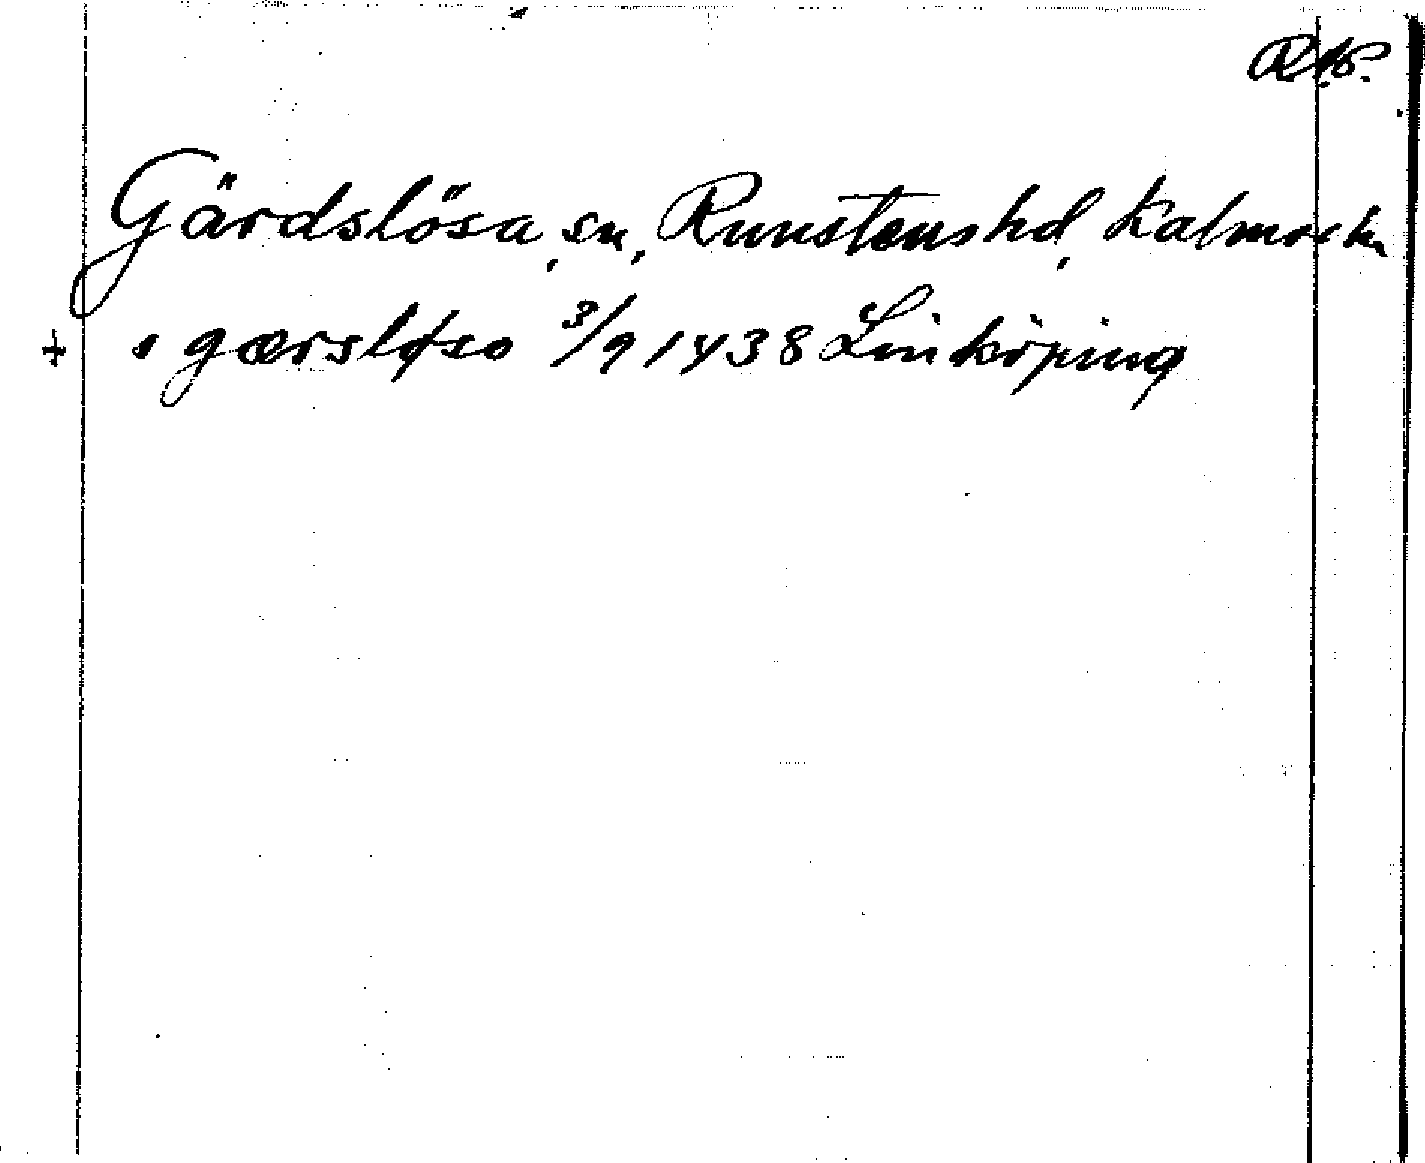 Gärdslösa, sn, Runstens hd, Kalmar län
‡ i gærsløso 3/9 1438 Linköping